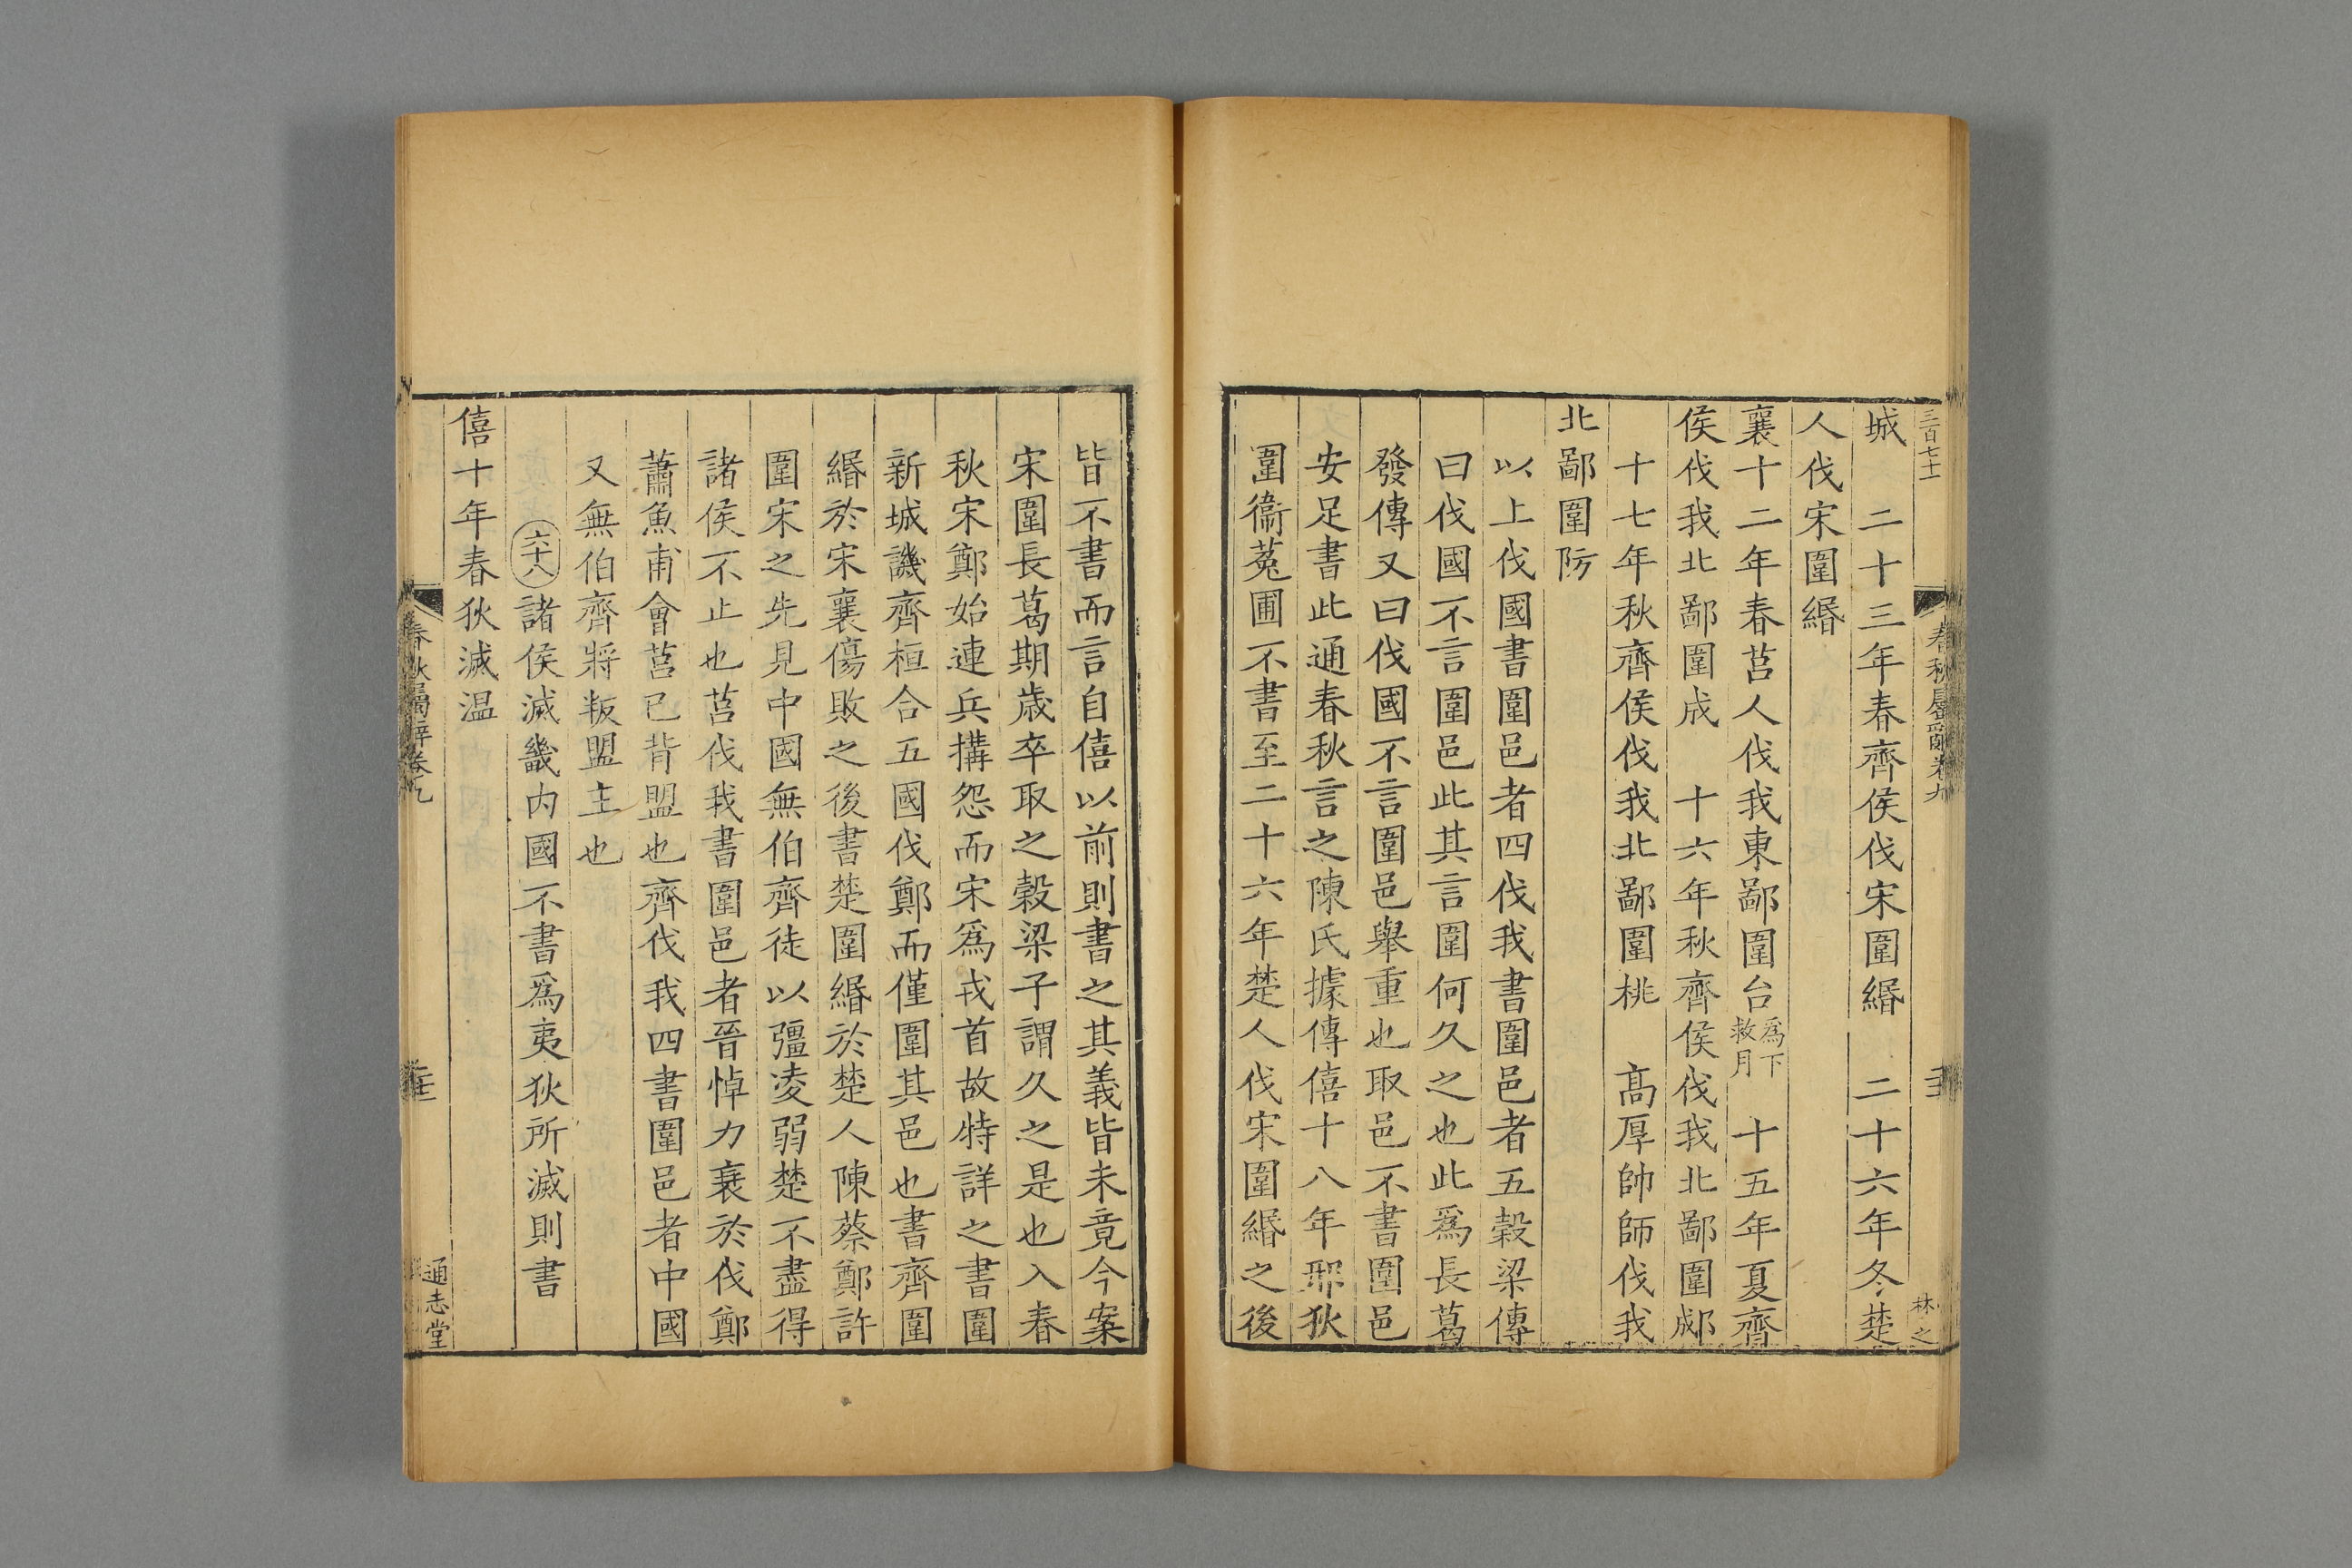 三百七十一
春秋屬辭卷九
林之
城　二十三年春齊侯伐宋圍緡　二十六年冬楚
人伐宋圍緡
襄十二年春莒人伐我東鄙圍台為下救月　十五年夏齊
侯伐我北鄙圍成　十六年秋齊侯伐我北鄙圍郕
十七年秋齊侯伐我北鄙圍桃　高厚帥師伐我
北鄙圍防
以上伐國書圍邑者四伐我書圍邑者五穀梁傳
曰伐國不言圍邑此其言圍何久之也此爲長葛
發傳又曰伐國不言圍邑舉重也取邑不書圍邑
安足書此通春秋言之陳氏據傳僖十八年邢狄
圍衞菟圃不書至二十六年楚人伐宋圍緡之後
皆不書而言自僖以前則書之其義皆未竟今案
宋圍長葛期歳卒取之穀梁子謂久之是也入春
秋宋鄭始連兵搆怨而宋爲戎首故特詳之書圍
新城譏齊桓合五國伐鄭而僅圍其邑也書齊圍
緡於宋襄傷敗之後書楚圍緡於楚人陳蔡鄭許
圍宋之先見中國無伯齊徒以彊凌弱楚不盡得
諸侯不止也莒伐我書圍邑者晉悼力衰於伐鄭
蕭魚甫會莒已背盟也齊伐我四書圍邑者中國
又無伯齊將叛盟主也
六十八諸侯滅畿内國不書爲夷狄所滅則書
僖十年春狄滅温
春秋屬辭卷九
通志堂